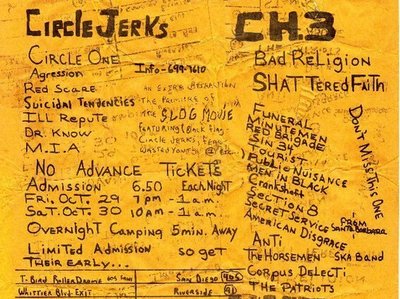 Circle Jerks
Circle One
Agression Info-699-7610
Red Scare
Suicidal Tendencies
Ill Repute
Dr. Know
M.I.A.
An Extra Attraction
The Premiere of
The SLOG MOVIE
Featuring: Black Flag,
Circle Jerks, Fear,
Wasted Youth, etc.
No Advance Tickets
Admission 6.50 Each Night
Fri. Oct. 29 7pm - 1am.
Sat. Oct. 30 10am - 1am.
Overnight Camping 5min. Away
Limited Admission so get
Their early...
T. Bird RollerDrome
Whittier Blvd Exit
San Diego 405
Riverside 91
CH.3
Bad Religion
Shattered Faith
Funeral
Minutemen
Red Brigade
Sin 34
Tourist
Public Nuisance
Men in Black
Crankshaft
Section 8
Secret Service
American Disgrace
From Santa Barbara
Don't Miss This One
Anti
The Horsemen Ska Band
Corpus Delecti
The Patriots